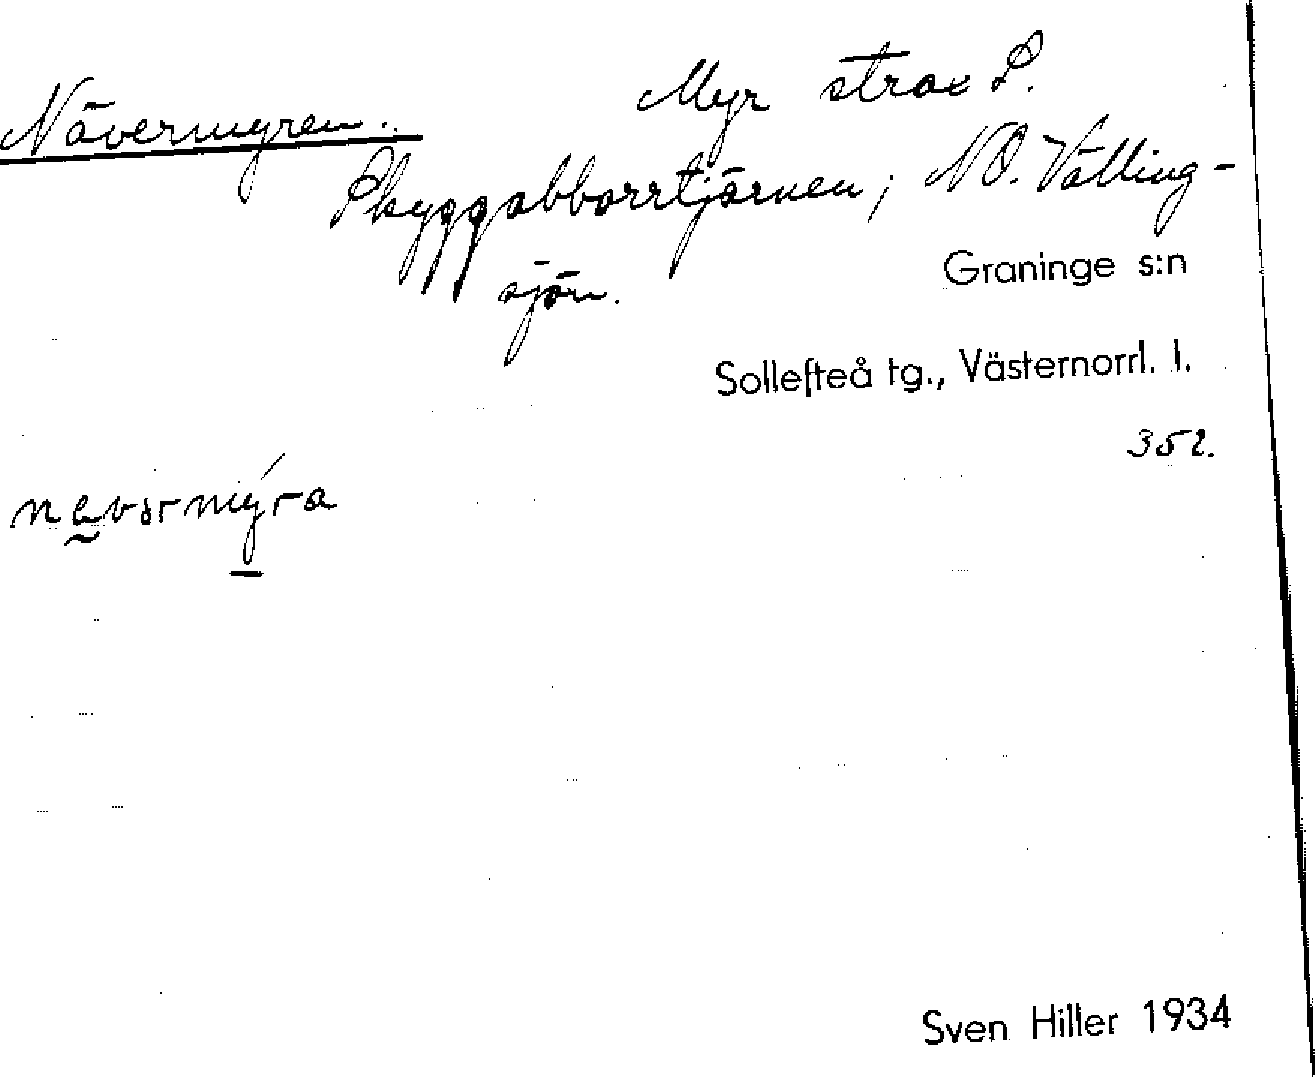 Nävermyren.
Myr strax S.
Skyggabborrtjärnen; NO. Välling-
sjön.
Graninge s:n
Sollefteå tg., Västernorrl. l.
352.
Sven Hiller 1934